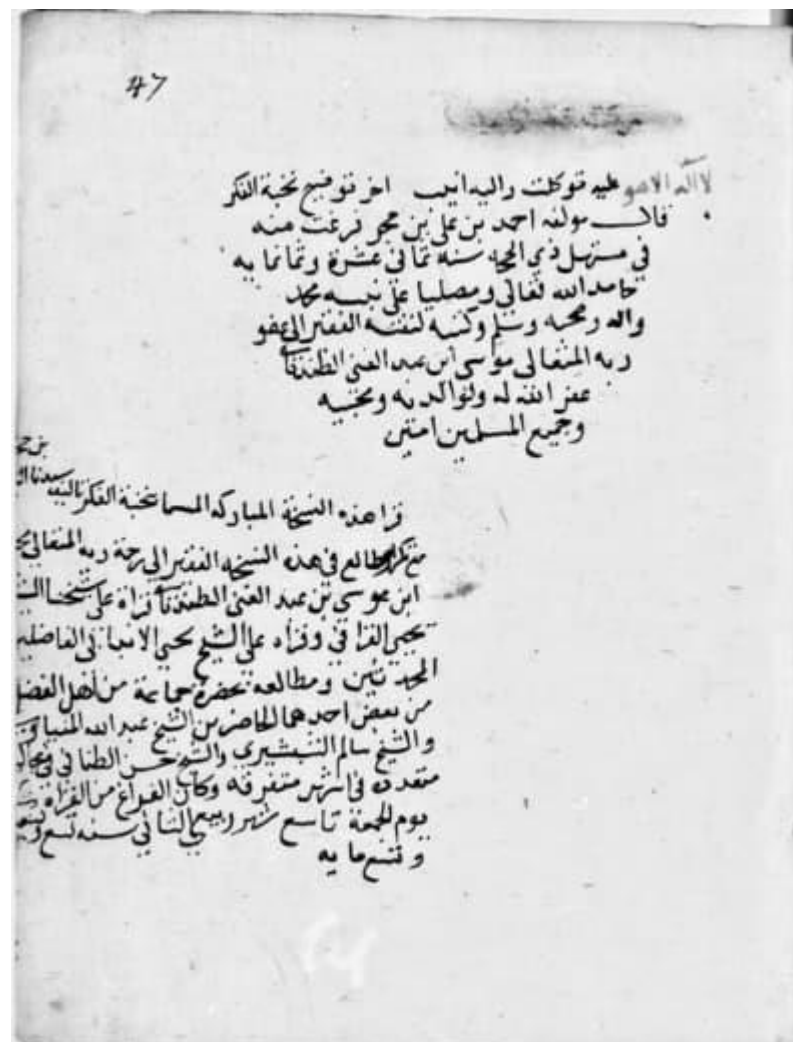 47
لا اله الا هو عليه توكلت واليه انيب اخر توضيح نخبة الفكر
قال مولفه احمد بن علي بن حجر فرغت منه
في مستهل ذي الحجه سنه ثماني عشرة وثمانمايه
حامدا لله تعالى ومصليا على نبيه محمد
واله وصحبه وسلم وكتبه لنفسه الفقير الى عفو
ربه المتعالي موسى ابن عبد الغني
غفر الله له ولوالديه ومحبيه
وجميع المسلمين امين
قرا هذه النسخة المباركه المسما نخبة الفكر تاليف سيدنا
في هذه النسخه الفقير الى رحمة ربه المتعالي
ابن موسى بن عبد الغني قراة على شيخنا
يحيى وقراه على الشيخ يحيى
المحدثين ومطالعه بحضرة جماعة من اهل الفضل
من بعض احدهما الحاضرين الشيخ عبد الله
والشيخ سالم والشيخ حسن
متعدده في اشهر متفرقه وكان الفراغ من القراة
يوم الجمعة تاسع شهر ربيع الثاني سنه تسع
وتسعمايه